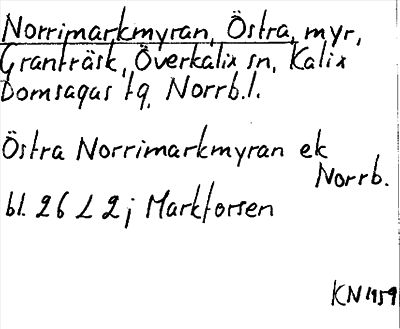 Norrimarkmyran, Östra, myr,
Granträsk, Överkalix sn, Kalix
Domsagas tg, Norrb.l.
Östra Norrimarkmyran ek
Norrb.
bl. 26 L 2 j Markforsen
KN 1959